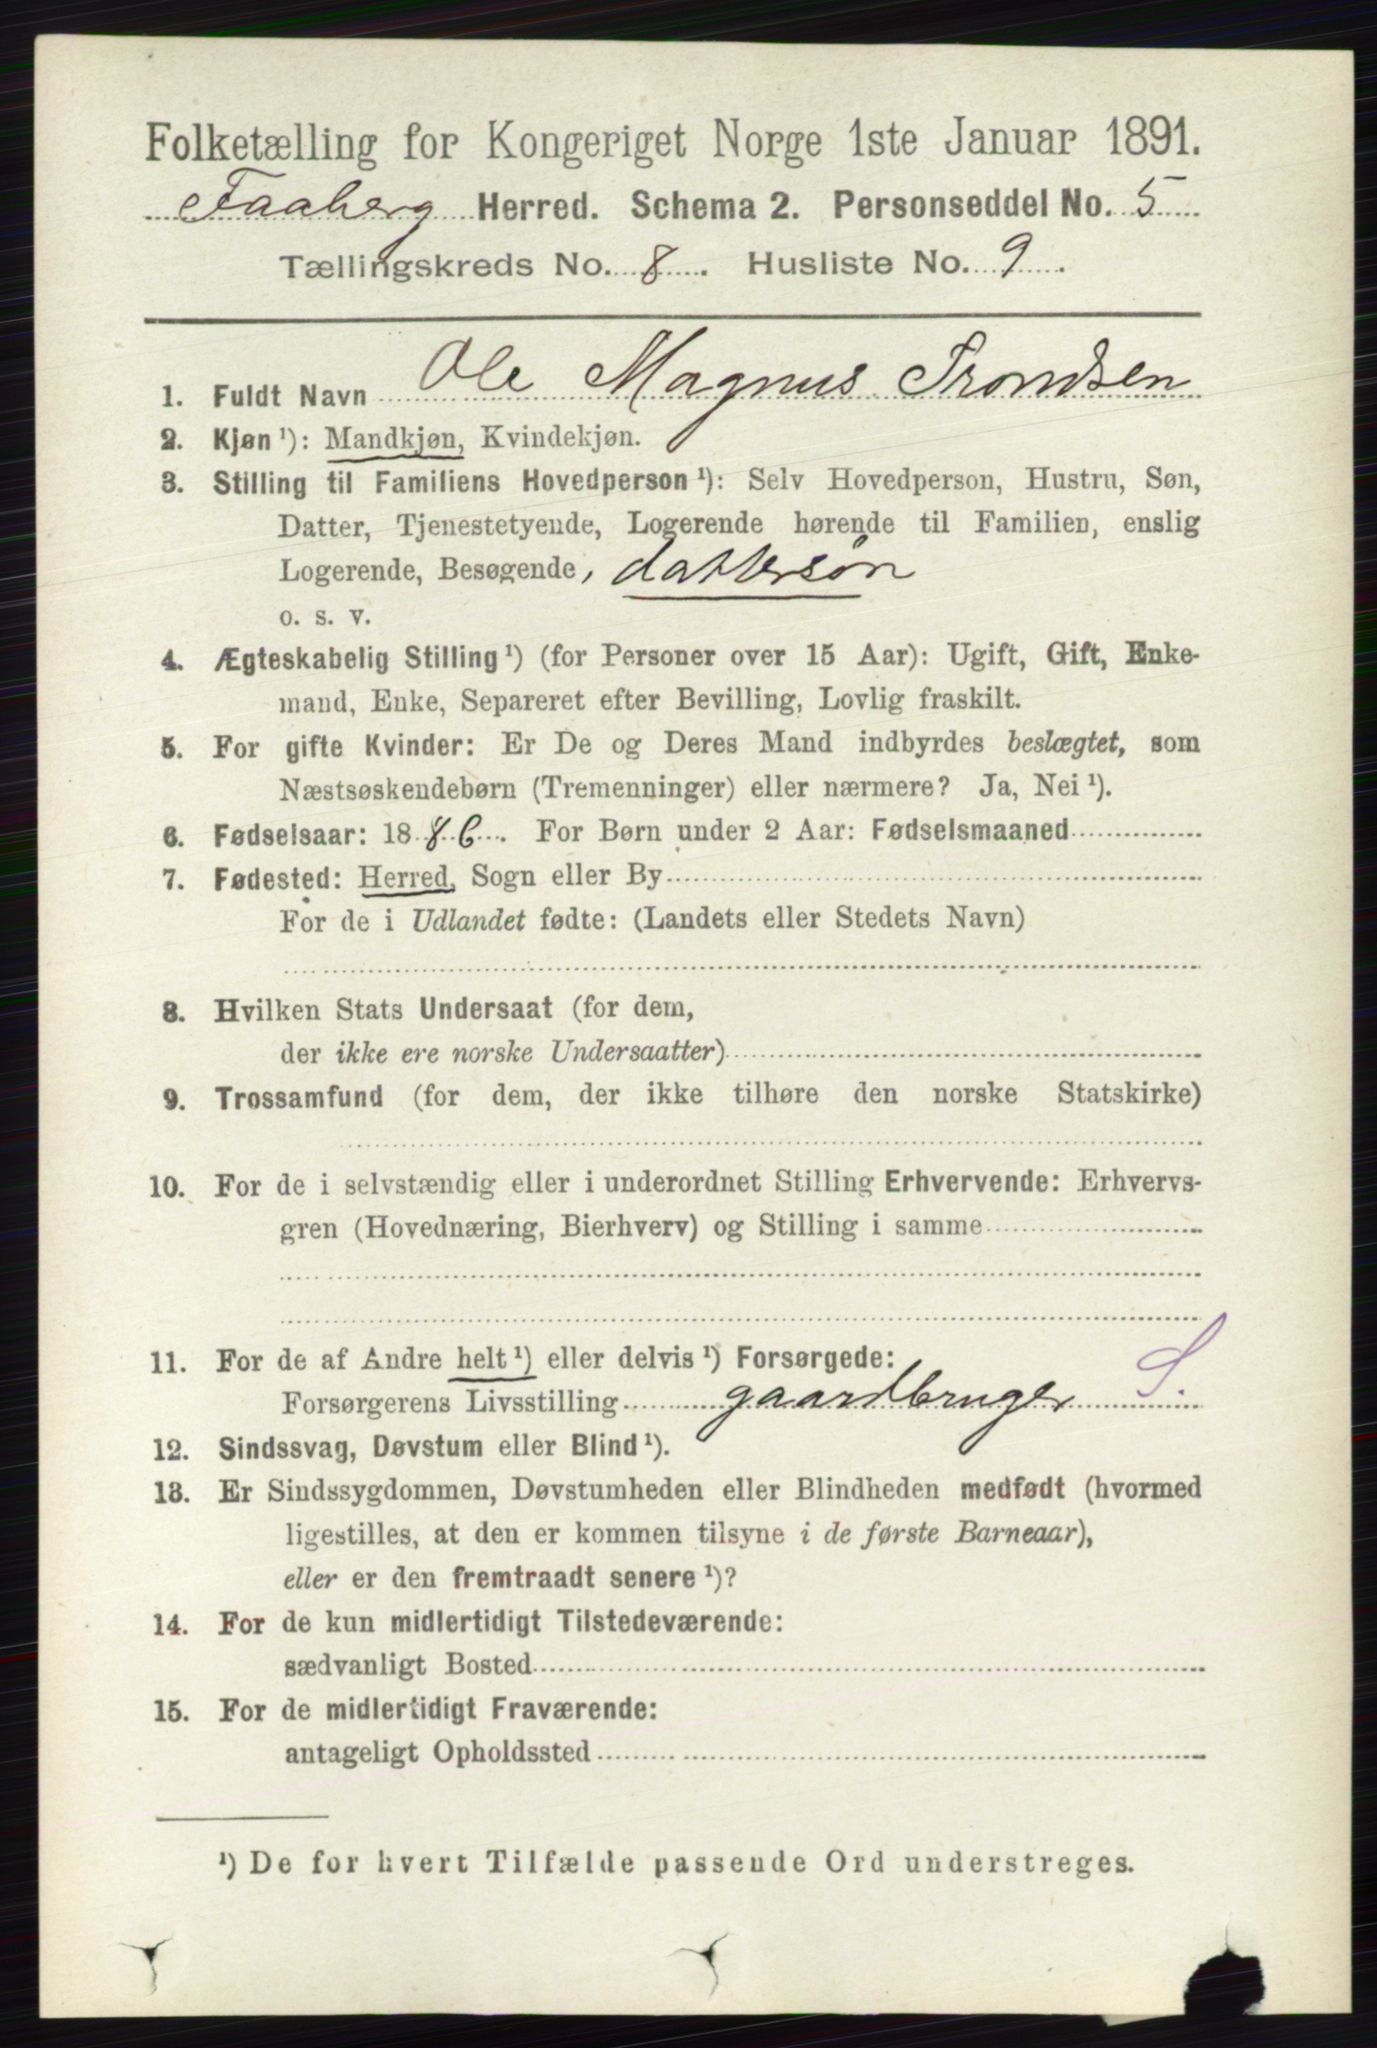 Folketælling for Kongeriget Norge 1ste Januar 1891.
Faaberg Herred. Schema 2. Personseddel No. 5
Tællingskreds No. 8. Husliste No. 9.
1. Fuldt Navn Ole Magnus Trondsen
2. Kjøn ¹): Mandkjøn, Kvindekjøn.
3. Stilling til Familiens Hovedperson ¹): Selv Hovedperson, Hustru, Søn,
Datter, Tjenestetyende, Logerende hørende til Familien, enslig
Logerende, Besøgende, dattersøn
o. s. v.
4. Ægteskabelig Stilling ¹) (for Personer over 15 Aar): Ugift, Gift, Enke-
mand, Enke, Separeret efter Bevilling, Lovlig fraskilt.
5. For gifte Kvinder: Er De og Deres Mand indbyrdes beslægtet, som
Næstsøskendebørn (Tremenninger) eller nærmere? Ja, Nei ¹).
6. Fødselsaar: 1886. For Børn under 2 Aar: Fødselsmaaned
7. Fødested: Herred, Sogn eller By
For de i Udlandet fødte: (Landets eller Stedets Navn)
8. Hvilken Stats Undersaat (for dem,
der ikke ere norske Undersaatter)
9. Trossamfund (for dem, der ikke tilhøre den norske Statskirke)
10. For de i selvstændig eller i underordnet Stilling Erhvervende: Erhvervs-
gren (Hovednæring, Bierhverv) og Stilling i samme
11. For de af Andre helt ¹) eller delvis ¹) Forsørgede:
Forsørgerens Livsstilling gaardbruger S.
12. Sindssvag, Døvstum eller Blind ¹).
13. Er Sindssygdommen, Døvstumheden eller Blindheden medfødt (hvormed
ligestilles, at den er kommen tilsyne i de første Barneaar),
eller er den fremtraadt senere ¹)?
14. For de kun midlertidigt Tilstedeværende:
sædvanligt Bosted
15. For de midlertidigt Fraværende:
antageligt Opholdssted
¹) De for hvert Tilfælde passende Ord understreges.